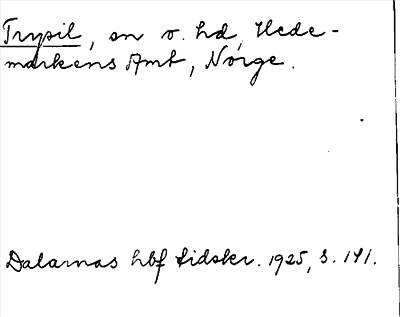 Trysil, sn o. hd, Hede-
markens Amt, Norge.
Dalarnas hbf tidskr. 1925, s. 141.